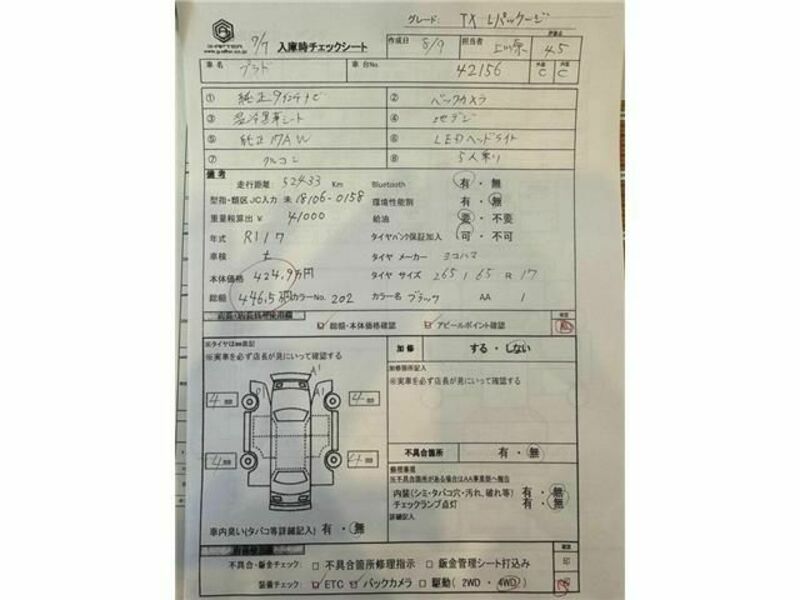 グレード: TX Lパッケージ
G-AFTER
7/7 入庫時チェックシート 作成日 8/9 担当者 評価点 4.5
車名 プラド 車台No. 42156 外装 C 内装 C
① 純正9インチナビ ② バックカメラ
③ 温冷風革シート ④ 地デジ
⑤ 純正17AW ⑥ LEDヘッドライト
⑦ クルコン ⑧ 5人乗り
備考
走行距離 52433 Km Bluetooth 有・無
型指・類区 JC入力 未 18106-0158 環境性能割 有・無
重量税算出 ¥ 41000 給油 要・不要
年式 R1 1 7 タイヤパンク保証加入 可・不可
車検 ナ タイヤ メーカー ヨコハマ
本体価格 424.9万円 タイヤ サイズ 265 / 65 R 17
総額 446.5万円 カラーNo. 202 カラー名 ブラック AA 1
総額・本体価格確認 アピールポイント確認
※実車を必ず店長が見にいって確認する
加修 する・しない
加修箇所記入
※実車を必ず店長が見にいって確認する
A1
A1
4 mm 4 mm
4 mm 4 mm
不具合箇所 有・無
※不具合箇所がある場合はAA事業部へ報告
内装(シミ・タバコ穴・汚れ、破れ等) 有・無
チェックランプ点灯 有・無
詳細記入
車内臭い(タバコ等詳細記入) 有・無
不具合・鈑金チェック: □ 不具合箇所修理指示 □ 鈑金管理シート打込み 印
装備チェック: □ ETC □ バックカメラ □ 駆動( 2WD・4WD)